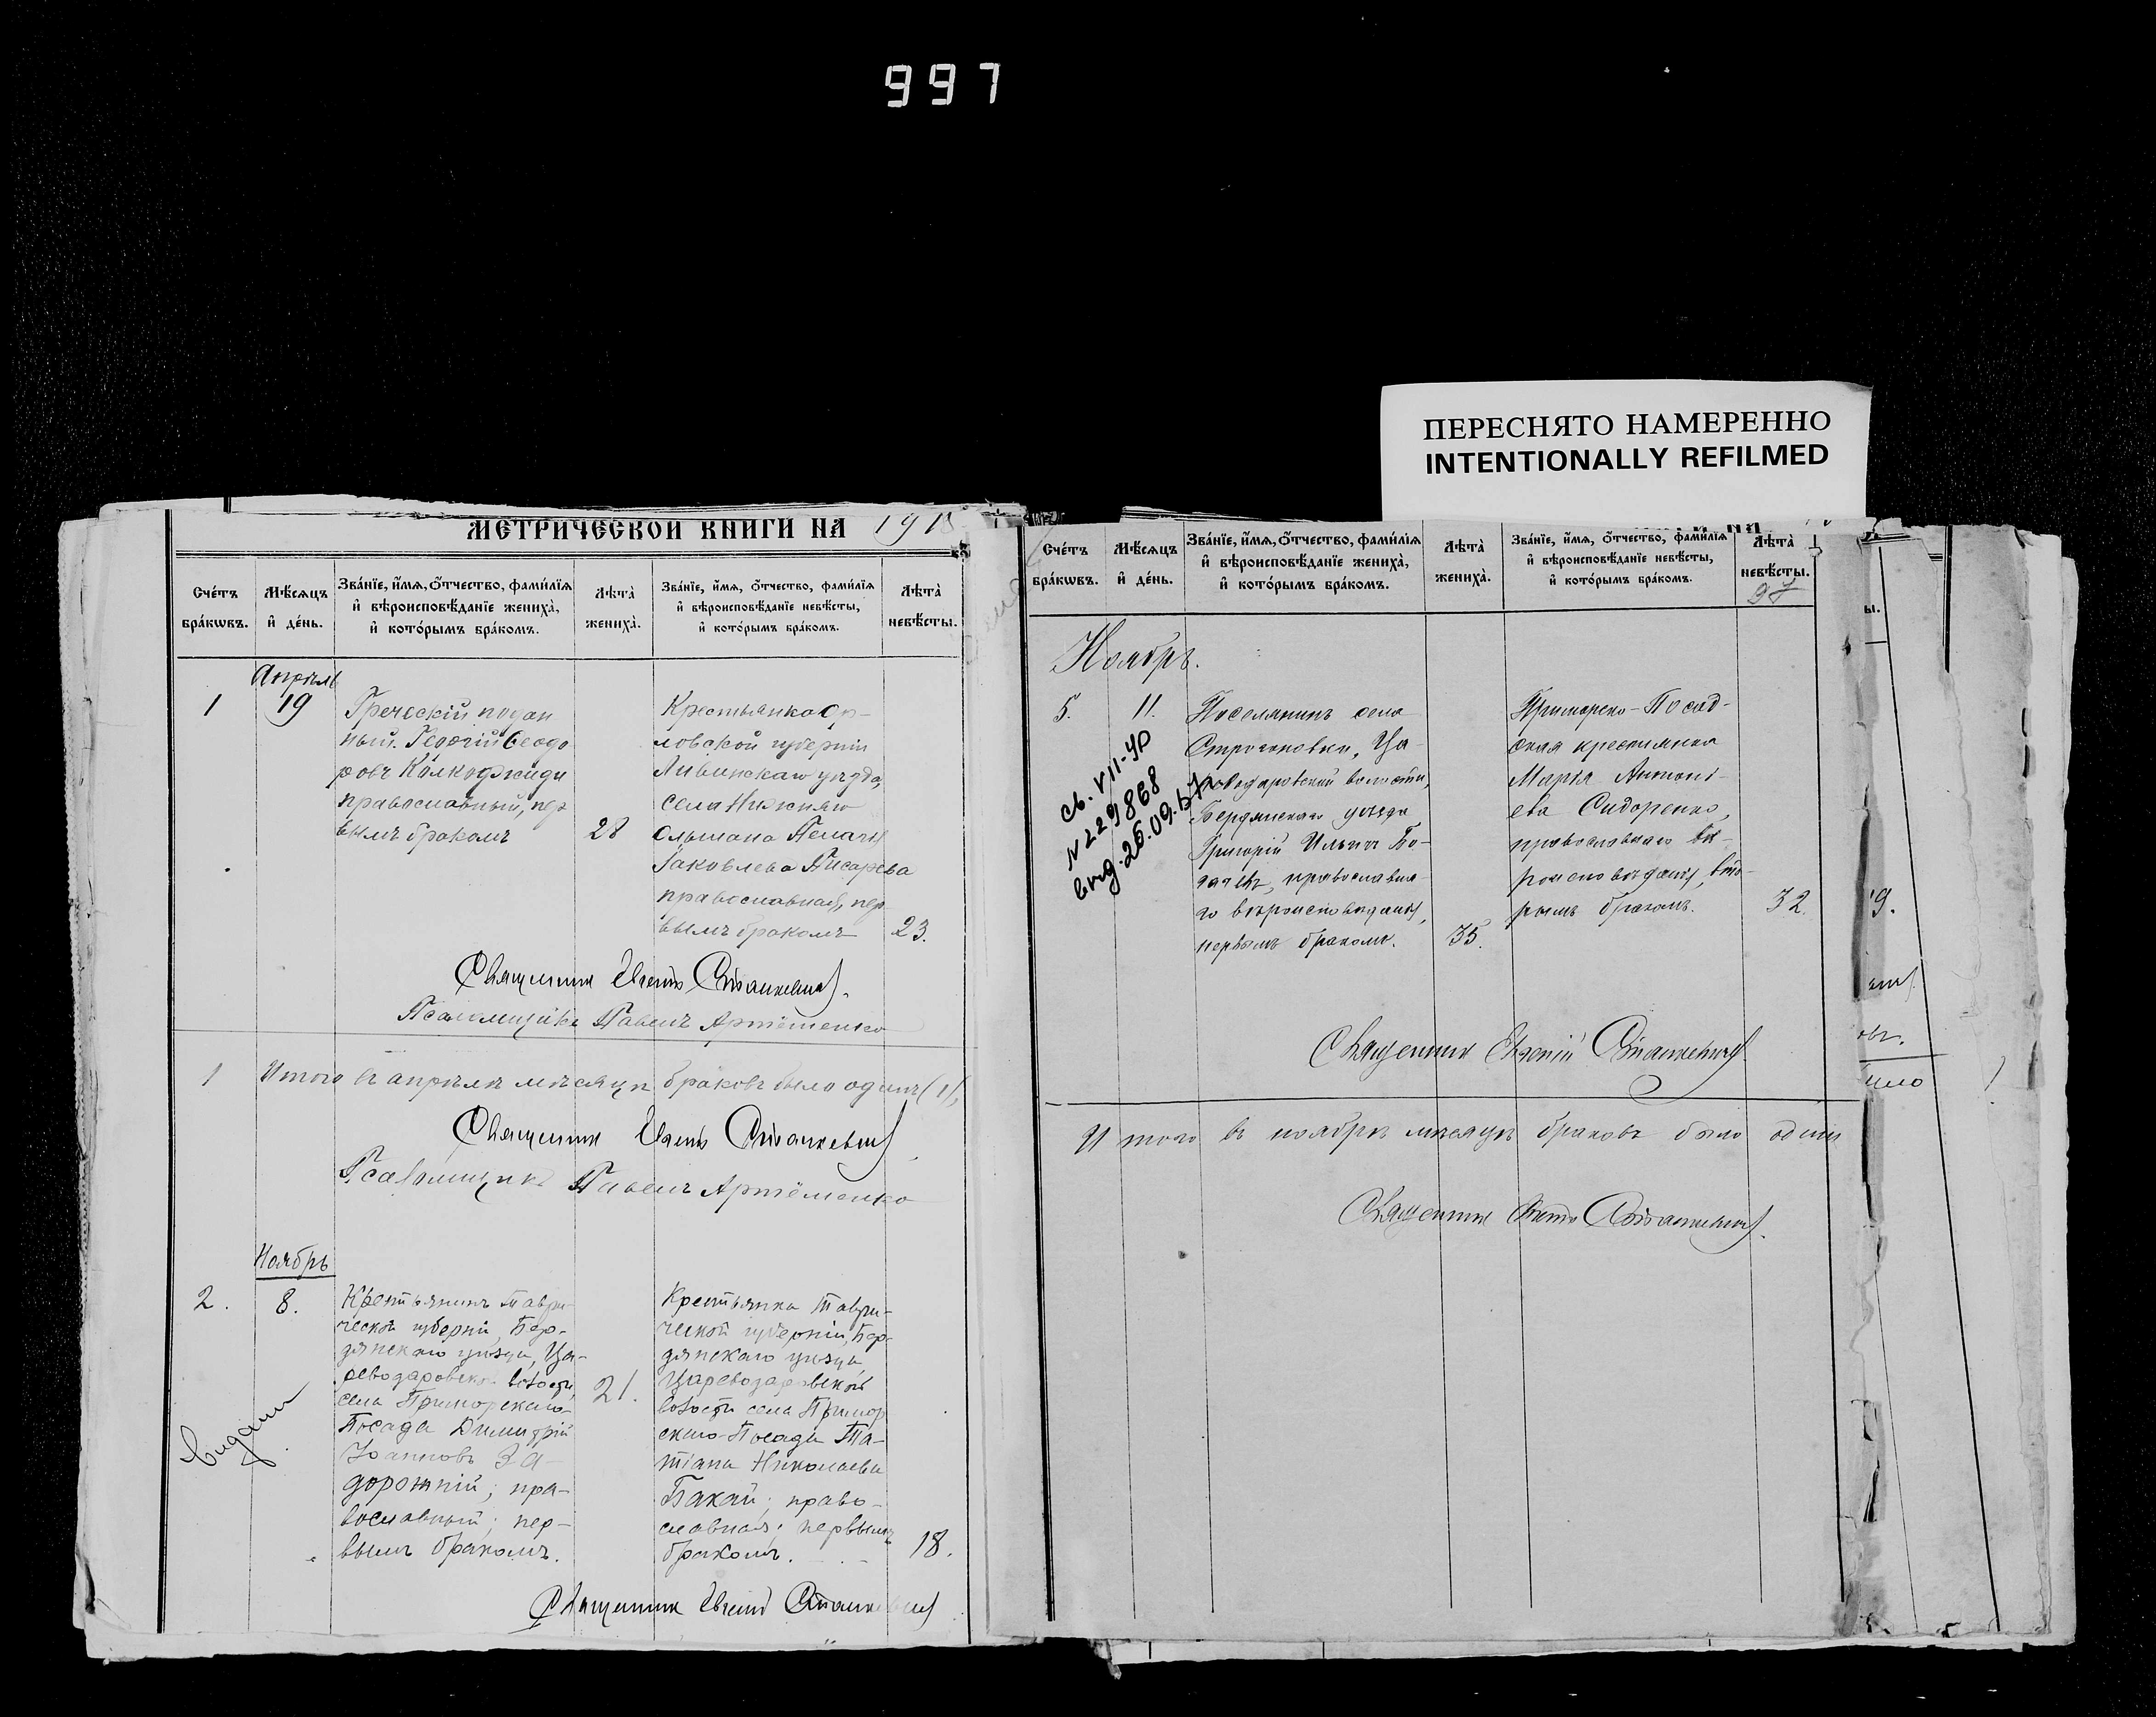 997
ПЕРЕСНЯТО НАМЕРЕННО
INTENTIONALLY REFILMED
МЕТРИЧЕСКОЙ КНИГИ НА 191
Сче́тъ бра́кѡвъ.
Мѣ́сяцъ и҆ де́нь.
Зва́нїе, и҆́мя, ѻ҆́тчество, фами́лїя
и҆ вѣроисповѣ́данїе жениха̀,
и҆ кото́рымъ бра́комъ.
Лѣ́та̀ жениха̀.
Зва́нїе, и҆́мя, ѻ҆́тчество, фами́лїя
и҆ вѣроисповѣ́данїе невѣ́сты,
и҆ кото́рымъ бра́комъ.
Лѣ́та̀ невѣ́сты.
Апрѣль
1
19
Греческій поддан
ный. Георгій Ѳеодо
ровъ
православный, пер
вымъ бракомъ
28
Крестьянка Ор-
ловской губерніи
Ливенскаго уѣзда,
села Нижняго
Ольшана
Яковлева Писарева
православная, пер
вымъ бракомъ
23.
Священник Евгеній Станкевич.
Псаломщикъ Павелъ Артёменко
1 Итого въ апрѣлѣ мѣсяцѣ браковъ было одинъ (1),
Священник Евгеній Станкевич
Псаломщикъ Павелъ Артёменко
Ноябрь
2.
8.
Крестьянинъ Таври-
ческой губерніи, Бер-
дянскаго уѣзда, Ца-
реводаровской волости,
села Приморскаго-
Посада Димитрій
Іоанновъ За-
дорожній; пра-
вославный; пер-
вымъ бракомъ.
21.
Крестьянка Таври-
ческой губерніи, Бер-
дянскаго уѣзда,
Цареводаровской
волости села Примор
скаго-Посада Та-
тіана Николаева
Бакай; право-
славная; первымъ
бракомъ.
18.
Священник Евгеній Станкевич
Сче́тъ бра́кѡвъ.
Мѣ́сяцъ и҆ де́нь.
Зва́нїе, и҆́мя, ѻ҆́тчество, фами́лїя
и҆ вѣроисповѣ́данїе жениха̀,
и҆ кото́рымъ бра́комъ.
Лѣ́та̀ жениха̀.
Зва́нїе, и҆́мя, ѻ҆́тчество, фами́лїя
и҆ вѣроисповѣ́данїе невѣ́сты,
и҆ кото́рымъ бра́комъ.
Лѣ́та̀ невѣ́сты.
97
Ноябрь.
5.
11.
св. VII-УР
N 229868
Поселянинъ села
Строгоновки, Ца-
реводаровской волости,
Бердянскаго уѣзда
Григорій Ильинъ
православна-
го вѣроисповѣданія,
первымъ бракомъ.
35.
Приморско-Посад-
ская крестьянка
Марія Антоні-
ева Сидоренко,
православнаго вѣ-
роисповѣданія, вто-
рымъ бракомъ.
32.
Священник Евгеній Станкевич
Итого въ ноябрѣ мѣсяцѣ браковъ было один
Священник Евгеній Станкевич.